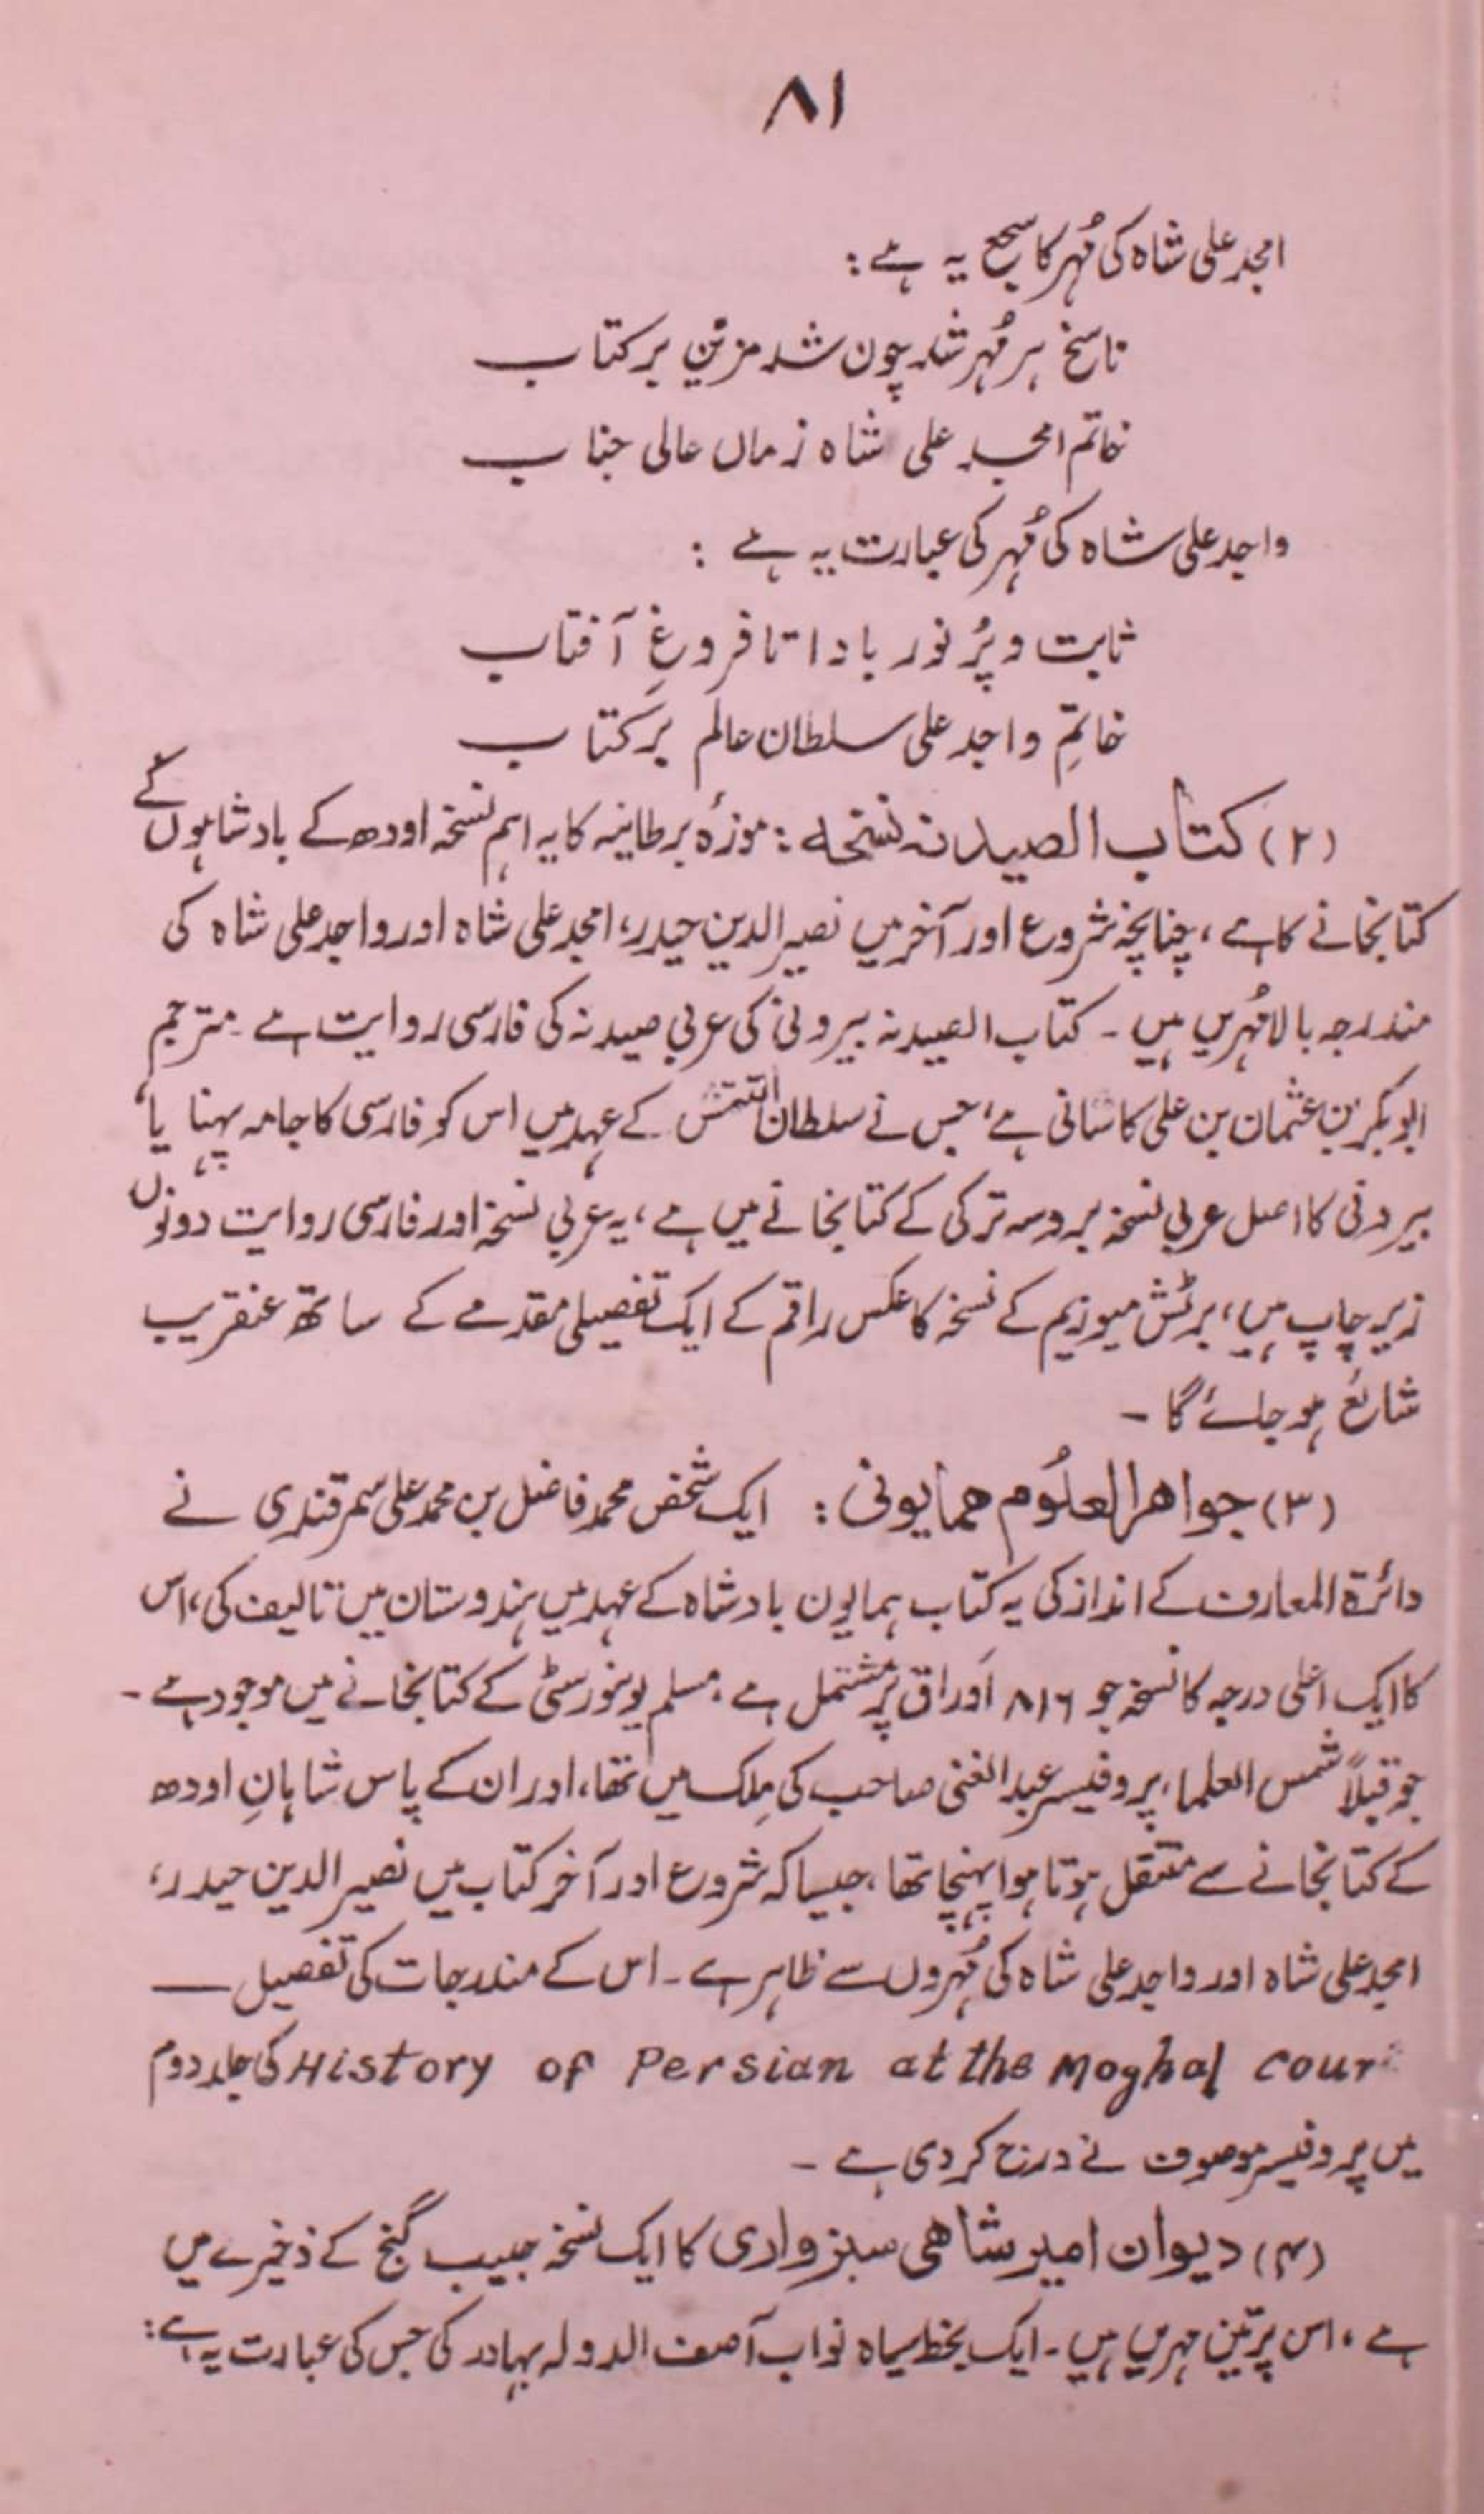 ۸۱
امجد علی شاہ کی مُہر کا سجع یہ ہے :
ناسخ ہر مُہر شد چون شد مزیّن بر کتاب
خاتم امجد علی شاہ زماں عالی جناب
واجد علی شاہ کی مُہر کی عبارت یہ ہے :
ثابت و پُر نور بادا تا فروغِ آفتاب
خاتمِ واجد علی سلطان عالم بر کتاب
(۲) کتاب الصیدنہ نسخہ : موزۂ برطانیہ کا یہ اہم نسخہ اودھ کے بادشاہوں کے
کتابخانے کا ہے ، چنانچہ شروع اور آخر میں نصیر الدین حیدر، امجد علی شاہ اور واجد علی شاہ کی
مندرجہ بالا مُہریں ہیں ۔ کتاب الصیدنہ بیرونی کی عربی صیدنہ کی فارسی روایت ہے ۔ مترجم
ابوبکر بن عثمان بن علی کاسانی ہے، جس نے سلطان التتمش کے عہد میں اس کو فارسی کا جامہ پہنایا،
بیرونی کا اصل عربی نسخہ بروسہ ترکی کے کتابخانے میں ہے ، یہ عربی نسخہ اور فارسی روایت دونوں
زیر چاپ ہیں ، برٹش میوزیم کے نسخہ کا عکس راقم کے ایک تفصیلی مقدمے کے ساتھ عنقریب
شائع ہو جائے گا ۔
(۳) جواھر العلُوم ھمایونی : ایک شخص محمد فاضل بن محمد علی سمرقندی نے
دائرۃ المعارف کے انداز کی یہ کتاب ہمایون بادشاہ کے عہد میں ہندوستان میں تالیف کی، اس
کا ایک اعلی درجہ کا نسخہ جو ۸۱۶ اَوراق پر مشتمل ہے ، مسلم یونورسٹی کے کتابخانے میں موجود ہے ۔
جو قبلاً شمس العلماء پروفیسر عبد الغنی صاحب کی مِلک میں تھا، اور ان کے پاس شاہانِ اودھ
کے کتابخانے سے منتقل ہوتا ہوا پہنچا تھا ، جیسا کہ شروع اور آخر کتاب میں نصیر الدین حیدر ،
امجد علی شاہ اور واجد علی شاہ کی مُہروں سے ظاہر ہے ۔ اس کے مندرجات کی تفصیل ـــ
History of Persian at the Moghal Court کی جلد دوم
میں پروفیسر موصوف نے درج کر دی ہے ۔
(۴) دیوان امیر شاھی سبزواری کا ایک نسخہ حبیب گنج کے ذخیرے میں
ہے ، اس پر تین مہریں ہیں ۔ ایک بخط سیاہ نواب آصف الدولہ بہادر کی جس کی عبارت یہ ہے :